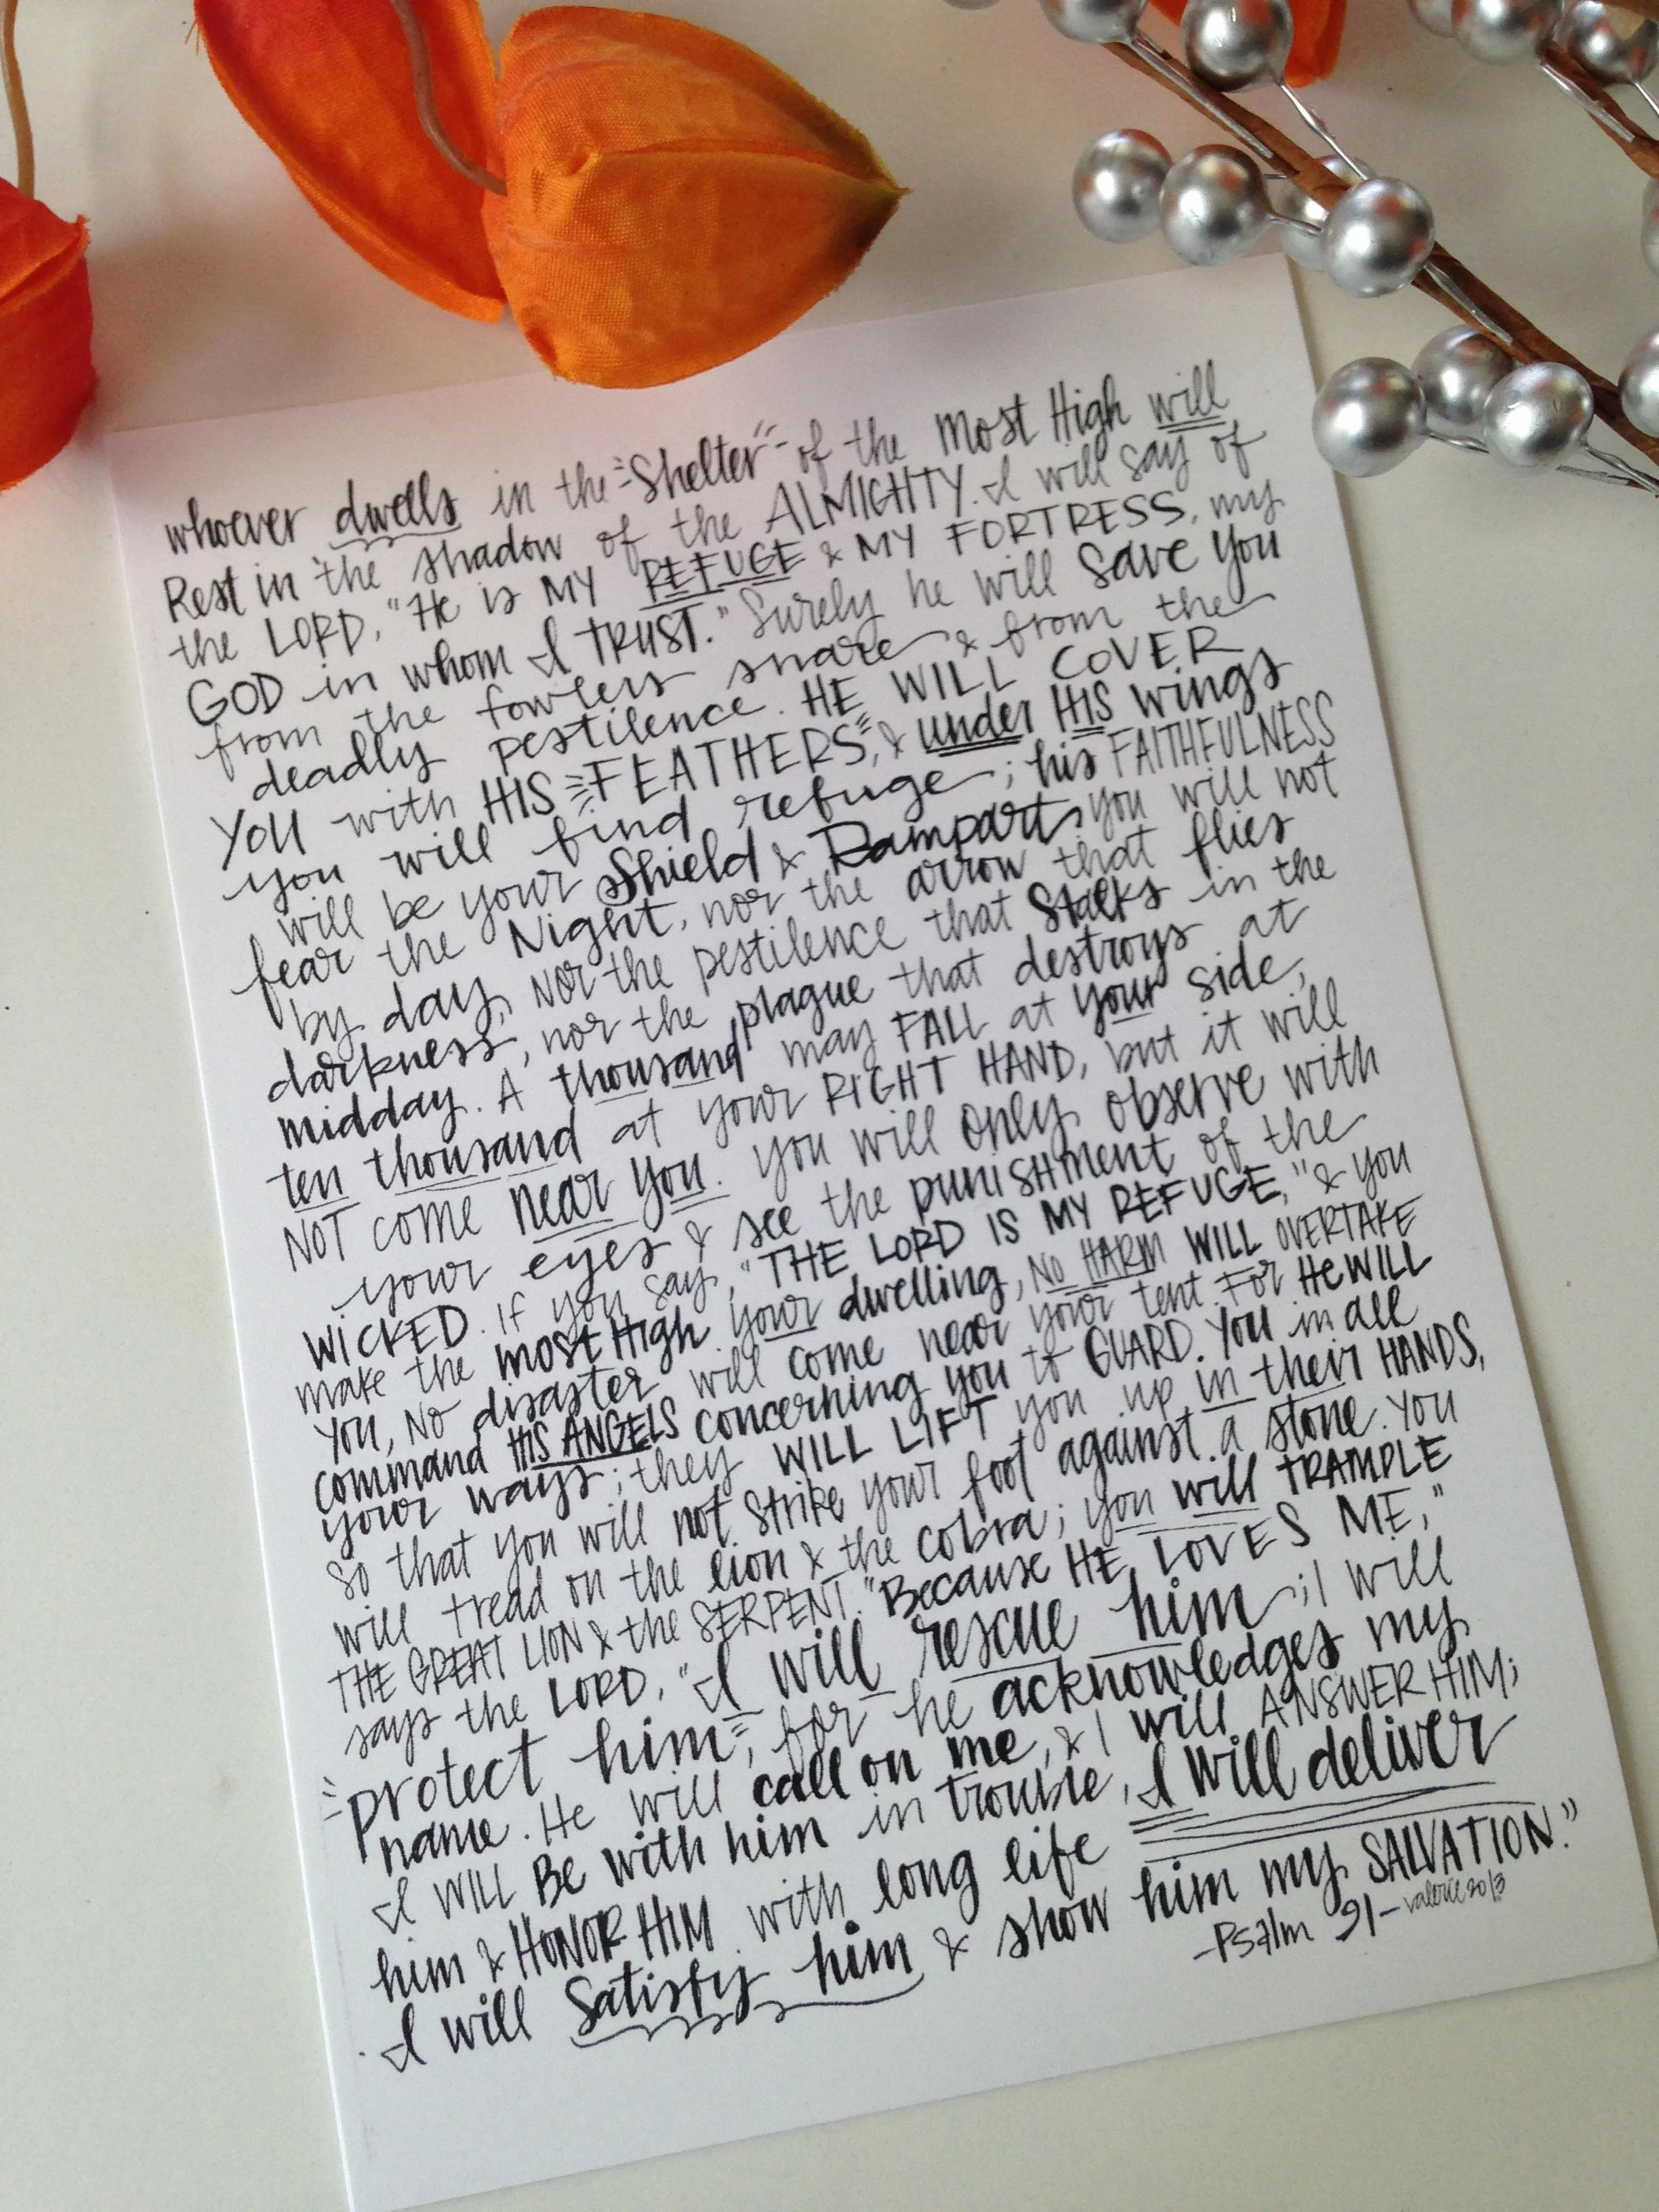 whoever dwells in the Shelter of the Most High will
Rest in the shadow of the ALMIGHTY. I will say of
the LORD, "He is MY REFUGE & MY FORTRESS, my
GOD in whom I TRUST." Surely he will save you
from the fowlers snare & from the
deadly pestilence. HE WILL COVER
YOU with HIS FEATHERS, & under HIS wings
you will find refuge; his FAITHFULNESS
will be your Shield & Rampart. you will not
fear the Night, nor the arrow that flies
by day, Nor the pestilence that Stalks in the
darkness, nor the plague that destroys at
midday. A thousand may FALL at your side,
ten thousand at your RIGHT HAND, but it will
NOT come near you. you will only observe with
your eyes & see the punishment of the
WICKED. If you say, "THE LORD IS MY REFUGE," & you
make the most High your dwelling, NO HARM WILL OVERTAKE
you, NO disaster will come near your tent. For He WILL
command HIS ANGELS concerning you to GUARD. You in all
your ways; they WILL LIFT you up in their HANDS,
so that you will not strike your foot against a stone. You
will tread on the lion & the cobra; you will TRAMPLE
THE GREAT LION & the SERPENT. "Because HE LOVES ME,"
says the LORD, "I will rescue him; I will
protect him, for he acknowledges my
name. He will call on me, & I will ANSWER HIM;
I WILL BE with him in trouble, I will deliver
him & HONOR HIM. with long life
I will Satisfy him & show him my SALVATION."
-Psalm 91- valerie 2013